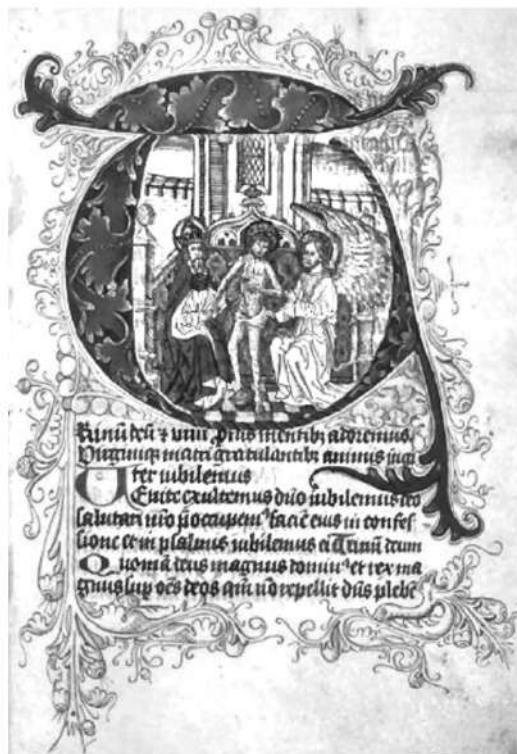 Rinū deū ⁊ unū pijs mentibꝫ adoremus
Virginiqꝫ matri gratulantibꝫ animis
ter iubilemus
Uenite exultemus dño iubilemus deo
salutari nr̄o p̄occupemꝰ faciē eius in confes
sione et in psalmis iubilemus ei Trinū deum
Quoniā deus magnus dominꝰ et rex ma
gnus sup oēs deos qm̄ nō repellit dn̄s plebē